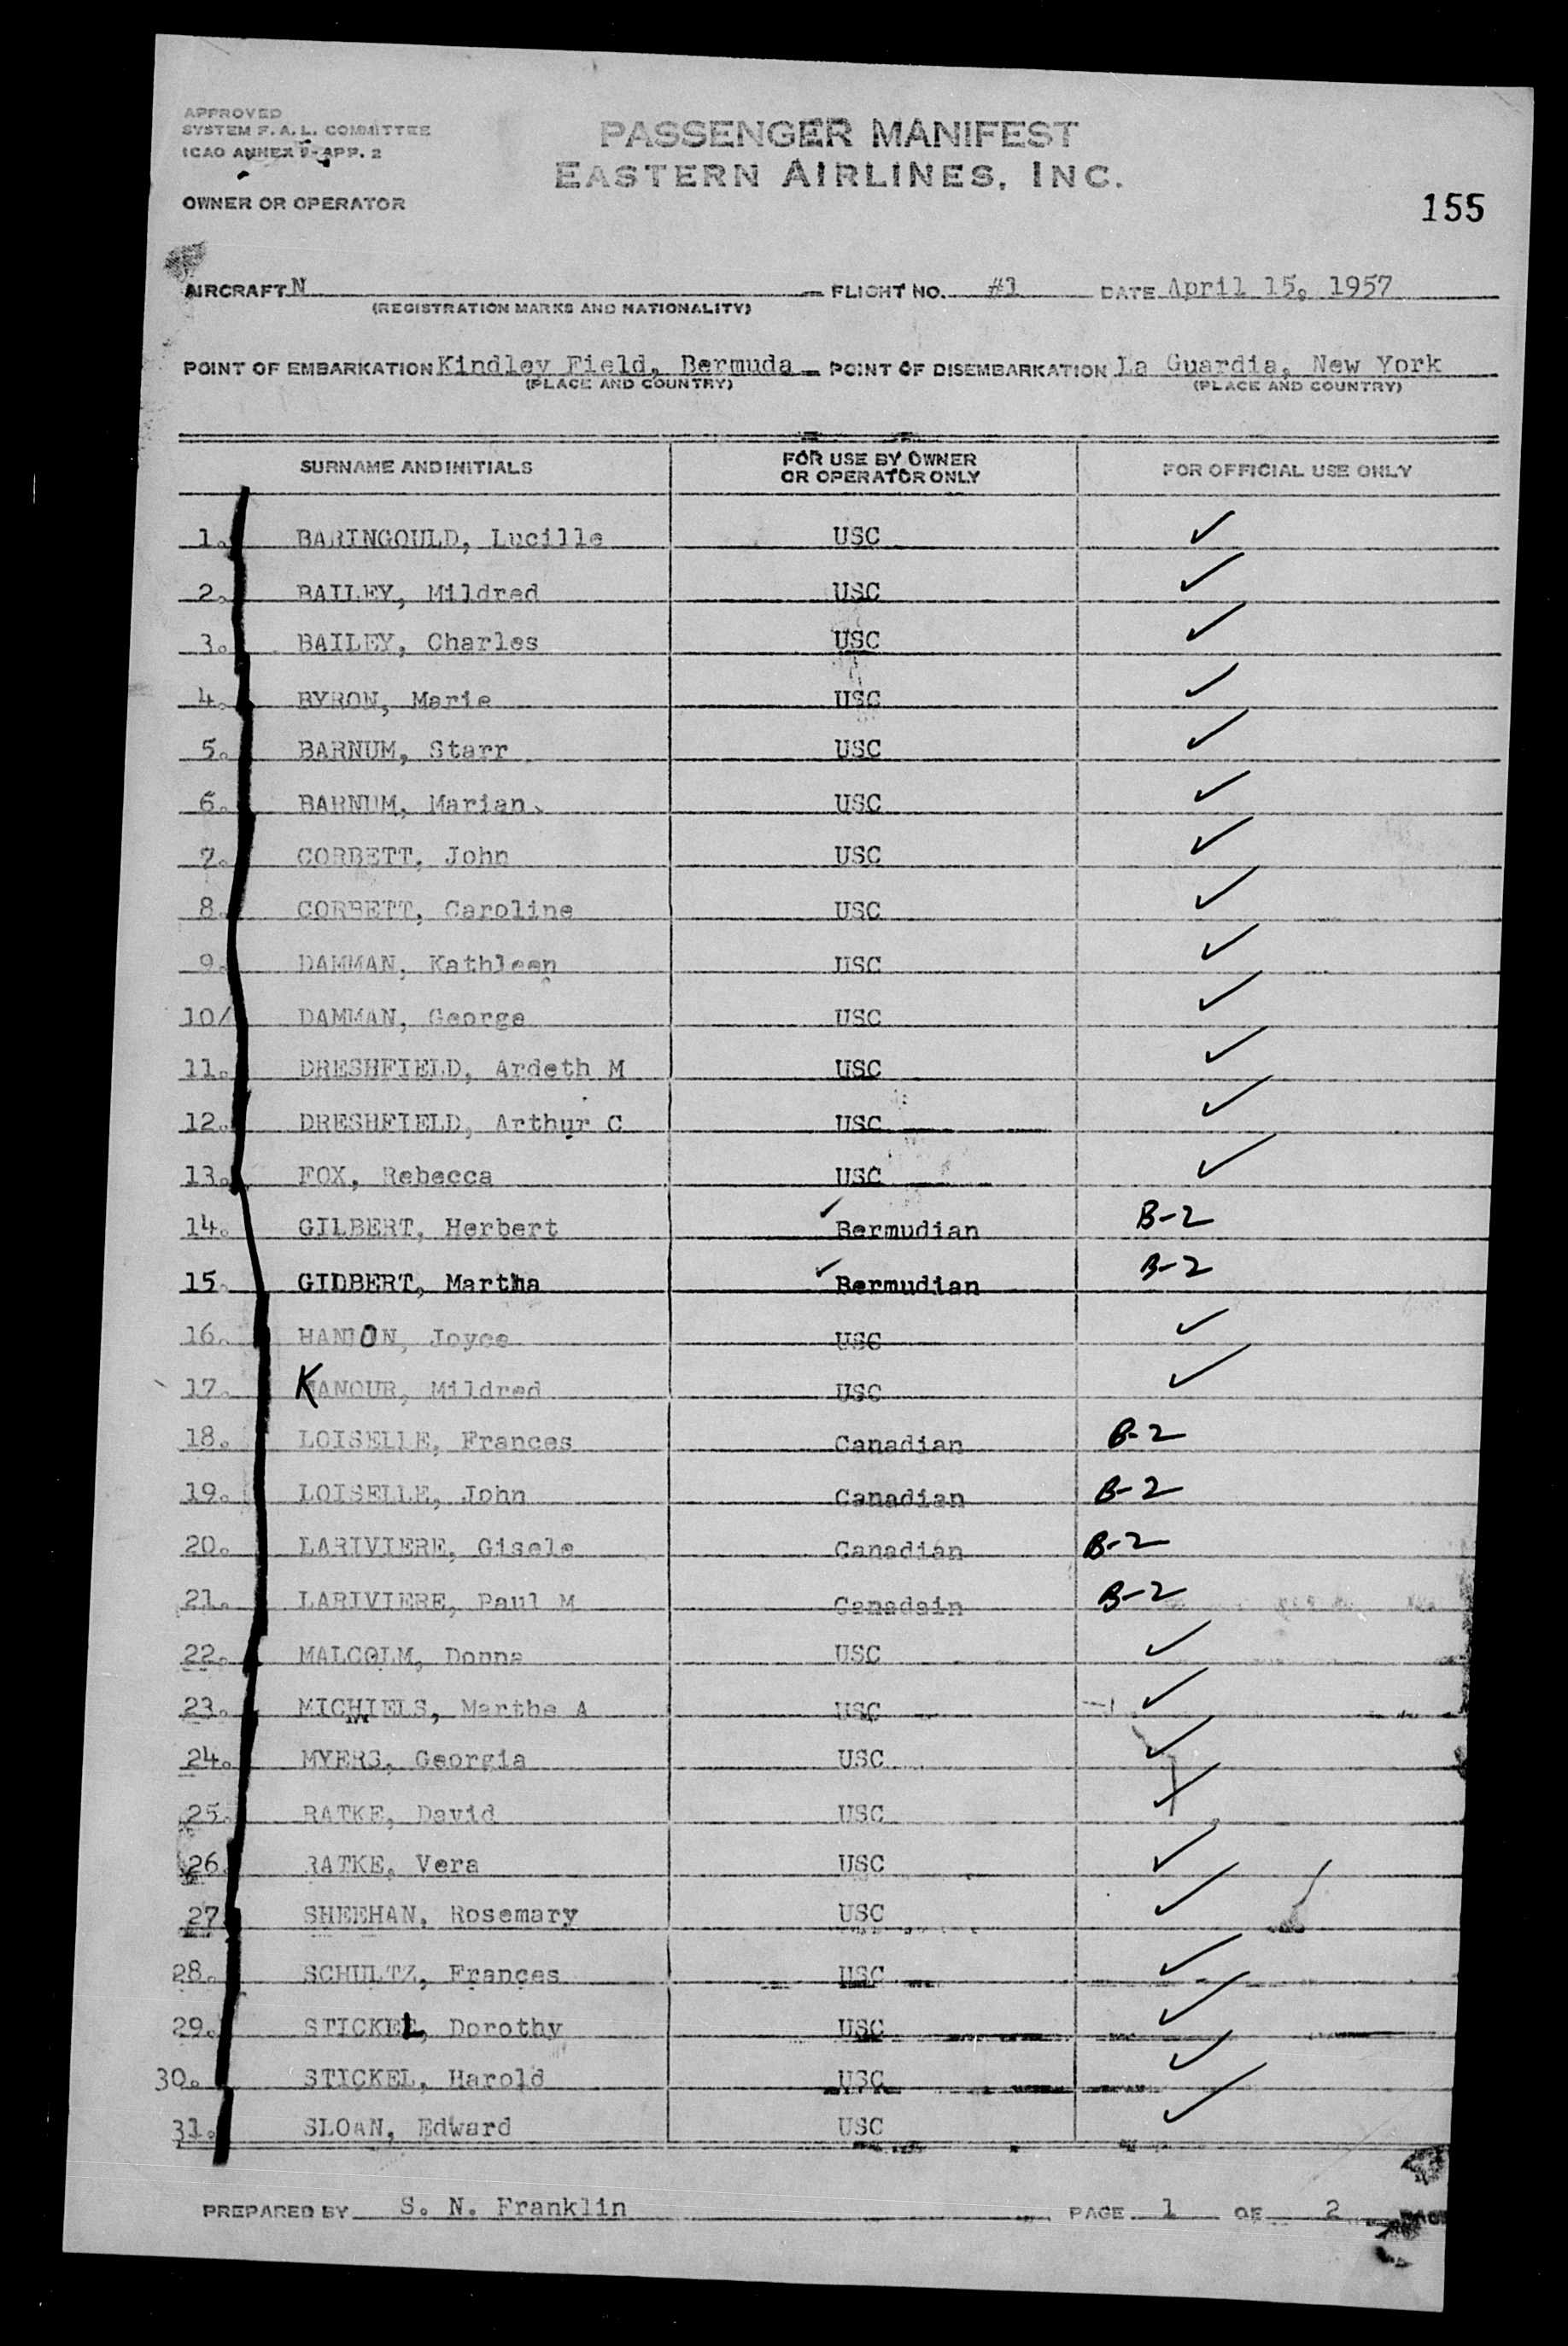 APPROVED
SYSTEM F. A. L. COMMITTEE
ICAO ANNEX 9-APP. 2
PASSENGER MANIFEST
EASTERN AIRLINES, INC.
OWNER OR OPERATOR
155
AIRCRAFT N FLIGHT NO. #1 DATE April 15, 1957
(REGISTRATION MARKS AND NATIONALITY)
POINT OF EMBARKATION Kindley Field, Bermuda POINT OF DISEMBARKATION La Guardia, New York
(PLACE AND COUNTRY) (PLACE AND COUNTRY)
SURNAME AND INITIALS FOR USE BY OWNER OR OPERATOR ONLY FOR OFFICIAL USE ONLY
1. BARINGOULD, Lucille USC ✓
2. BAILEY, Mildred USC ✓
3. BAILEY, Charles USC ✓
4. BYRON, Marie USC ✓
5. BARNUM, Starr USC ✓
6. BARNUM, Marian USC ✓
7. CORBETT, John USC ✓
8. CORBETT, Caroline USC ✓
9. DAMMAN, Kathleen USC ✓
10/ DAMMAN, George USC ✓
11. DRESHFIELD, Ardeth M USC ✓
12. DRESHFIELD, Arthur C USC ✓
13. FOX, Rebecca USC ✓
14. GILBERT, Herbert ✓ Bermudian B-2
15. GILBERT, Martha ✓ Bermudian B-2
16. Joyce USC ✓
17. KANOUR, Mildred USC ✓
18. LOISELLE, Frances Canadian B-2
19. LOISELLE, John Canadian B-2
20. LARIVIERE, Gisele Canadian B-2
21. LARIVIERE, Paul M Canadain B-2
22. MALCOLM, Donna USC ✓
23. MICHIELS, Marthe A USC ✓
24. MYERS, Georgia USC ✓
25. RATKE, David USC ✓
26. RATKE, Vera USC ✓
27. SHEEHAN, Rosemary USC ✓
28. SCHULTZ, Frances USC ✓
29. STICKEL, Dorothy USC ✓
30. STICKEL, Harold USC ✓
31. SLOAN, Edward USC ✓
PREPARED BY S. N. Franklin PAGE 1 OF 2